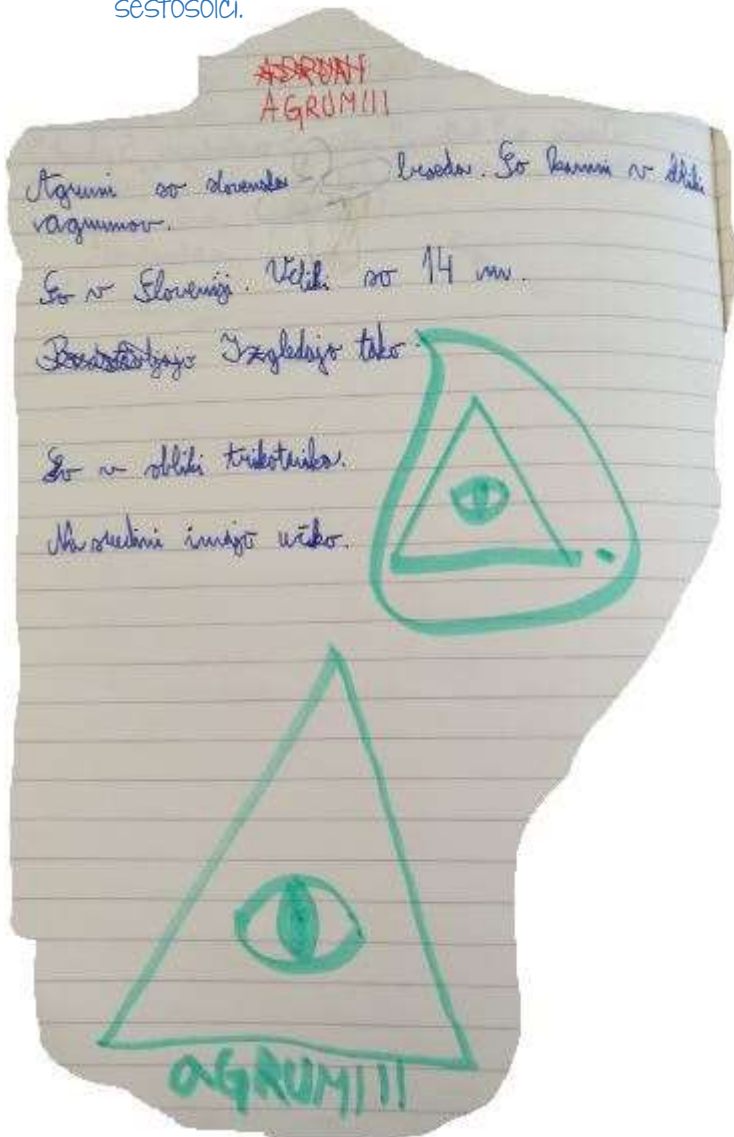 šestošolci.
AGRUMI!!
Agrumi so slovenska beseda. So kamni v obliki
vagrumov.
So v Sloveniji. Veliki so 14 m.
Izgledajo tako:
So v obliki trikotnika.
Na sredini imajo učko.
AGRUMI!!